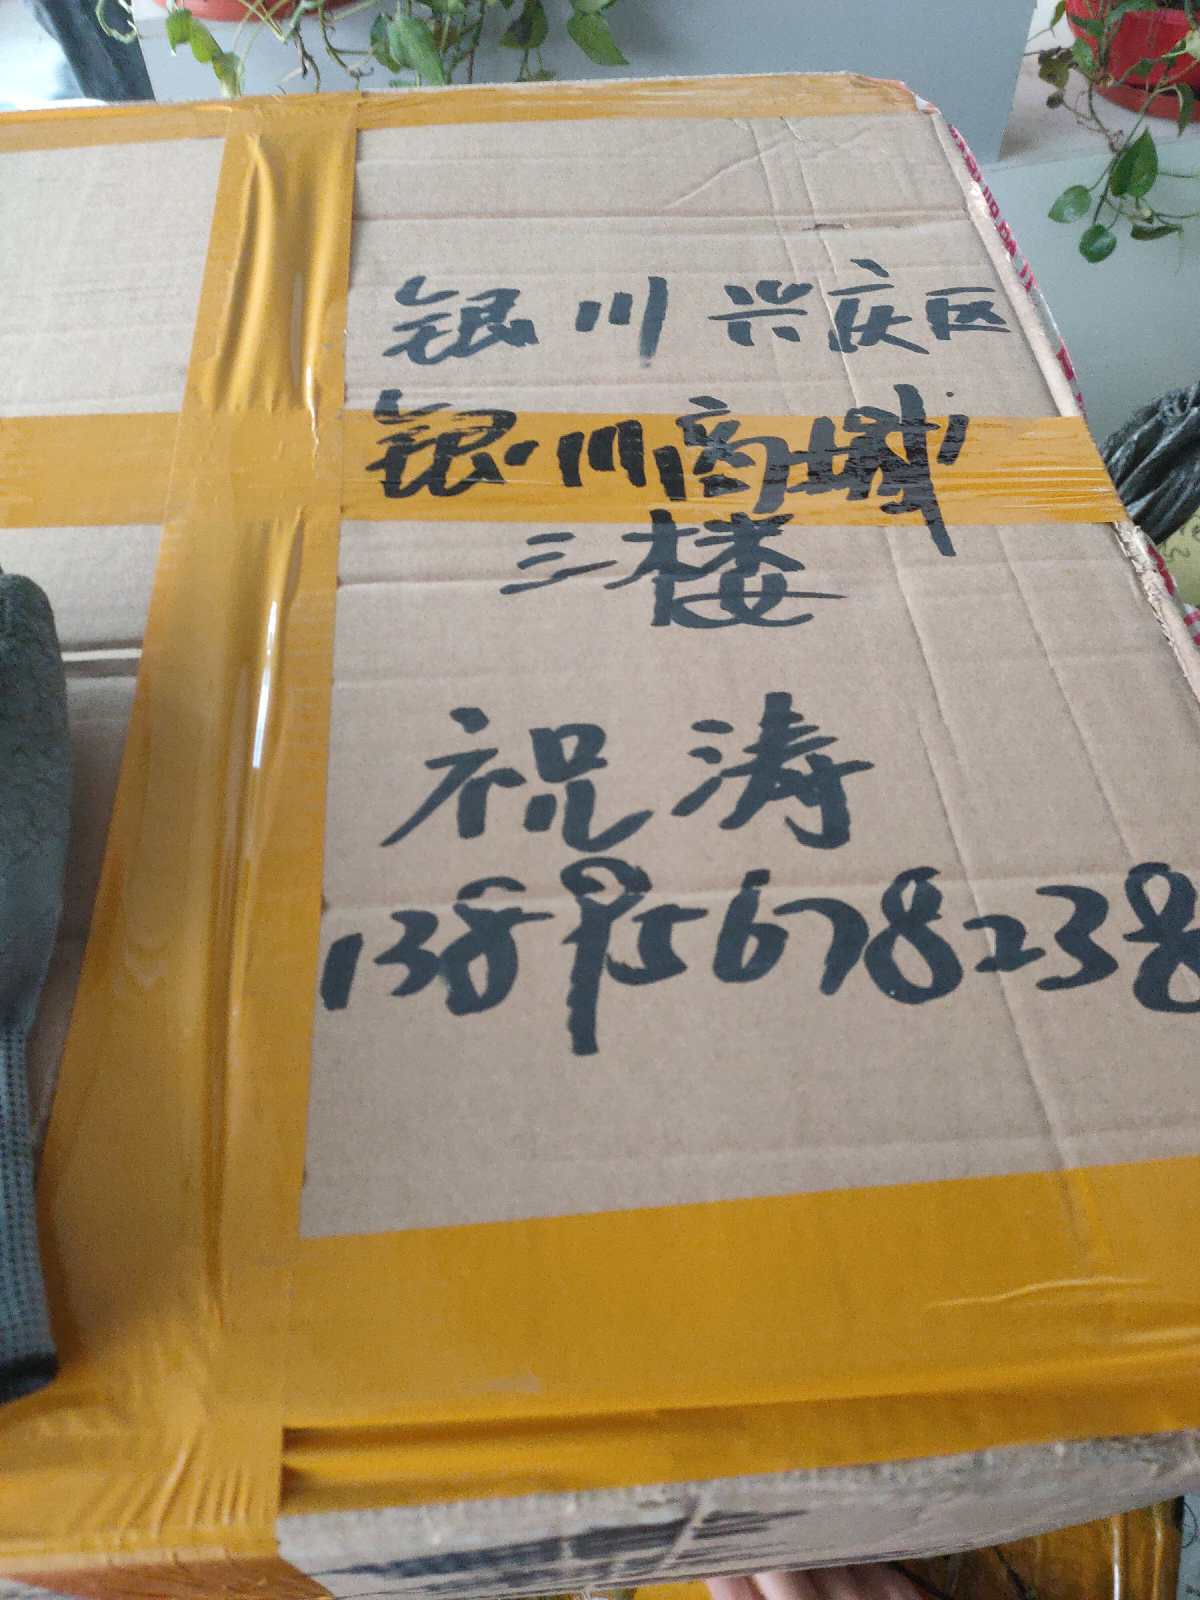 银川兴庆区
银川商城
三楼
祝涛
13895678238